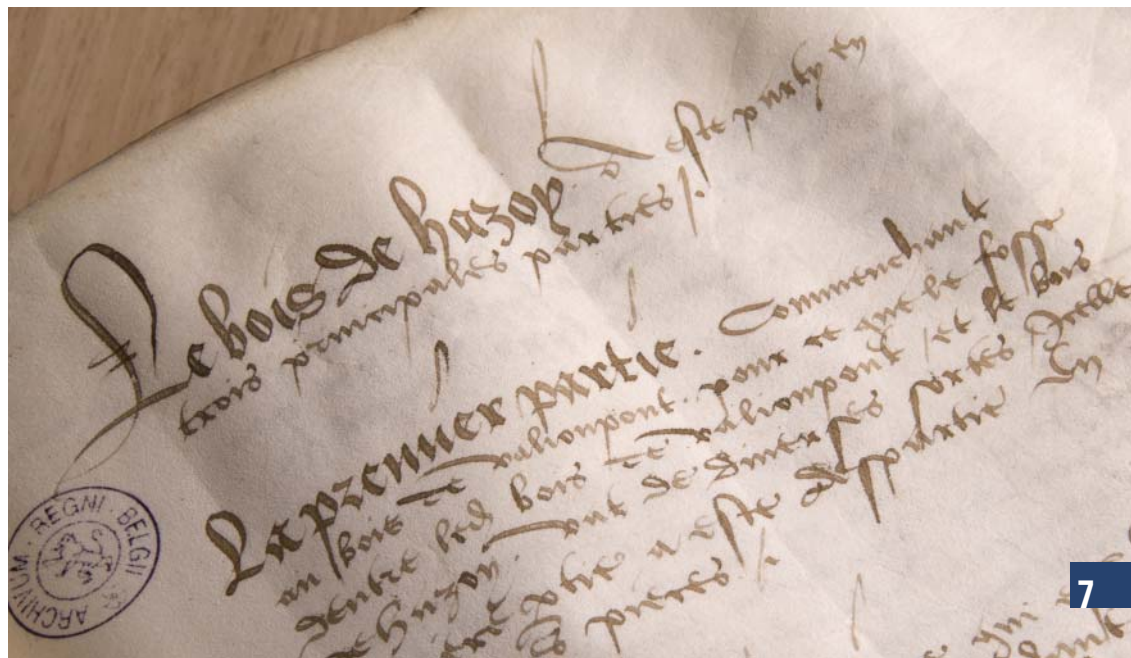 Le bois de hazoy. a este party en
trois principales parties /.
La premier partie. Commenchant
au bois de valionpont. pour ce que le fosse
dentre led bois de valionpont /et le bois
de hazoy. de diuerses sortes Icelle
ptie a este despartie En
pieces /.
qui
ARCHIVUM REGNI BELGII
7